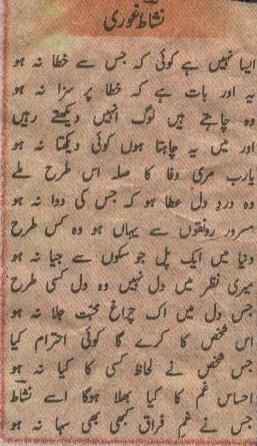 نشاط غوری
ایسا نہیں ہے کوئی کہ جس سے خطا نہ ہو
یہ اور بات ہے کہ خطا پر سزا نہ ہو
وہ چاہتے ہیں لوگ انہیں دیکھتے رہیں
اور میں یہ چاہتا ہوں کوئی دیکھتا نہ ہو
یارب مری وفا کا صلہ اس طرح ملے
وہ درد دل عطا ہو کہ جس کی دوا نہ ہو
مسرور رونقوں سے یہاں ہو وہ کس طرح
دنیا میں ایک پل جو سکوں سے جیا نہ ہو
میری نظر میں دل نہیں وہ دل کسی طرح
جس دل میں اک چراغ محبت جلا نہ ہو
اس شخص کا کرے گا کوئی احترام کیا
جس شخص نے لحاظ کسی کا کیا نہ ہو
احساس غم کا کیا بھلا ہوگا اسے نشاطؔ
جس نے غم فراق کبھی بھی سہا نہ ہو